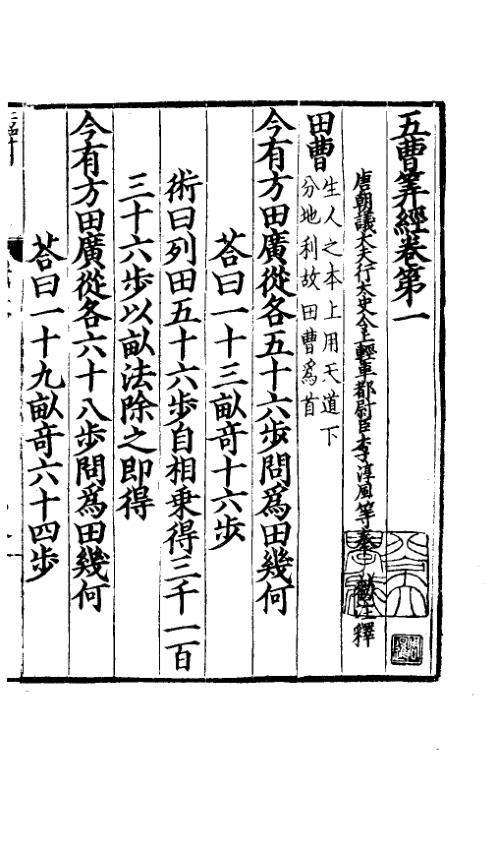 五曹筭經卷第一
唐朝議大夫行太史令上輕車都尉臣李淳風等奉 勑注釋
田曹 生人之本上用天道下
分地利故田曹爲首
今有方田廣從各五十六步問爲田幾何
荅曰一十三畝竒十六步
術曰列田五十六步自相乗得三千一百
三十六步以畝法除之即得
今有方田廣從各六十八步問爲田幾何
荅曰一十九畝竒六十四步